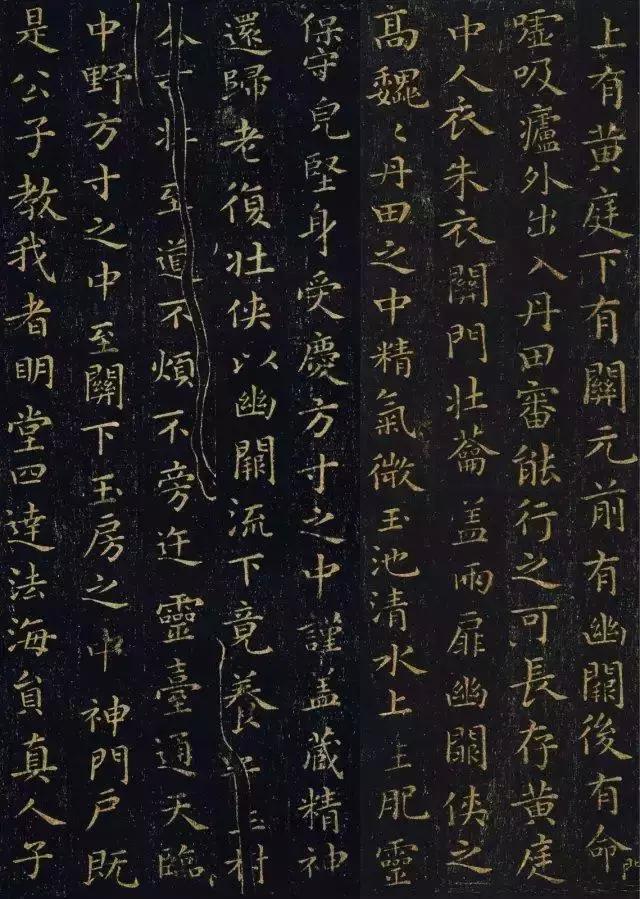 上有黃庭下有關元前有幽闕後有命門
噓吸廬外出入丹田審能行之可長存黃庭
中人衣朱衣關門壯蘥蓋兩扉幽闕俠之
高巍〻丹田之中精氣微玉池清水上生肥靈
保守皃堅身受慶方寸之中謹盖藏精神
還歸老復壯俠以幽闕流下竟養子玉樹
不可扙至道不煩不旁迕靈臺通天臨
中野方寸之中至關下玉房之中神門戶既
是公子教我者明堂四達法海員真人子